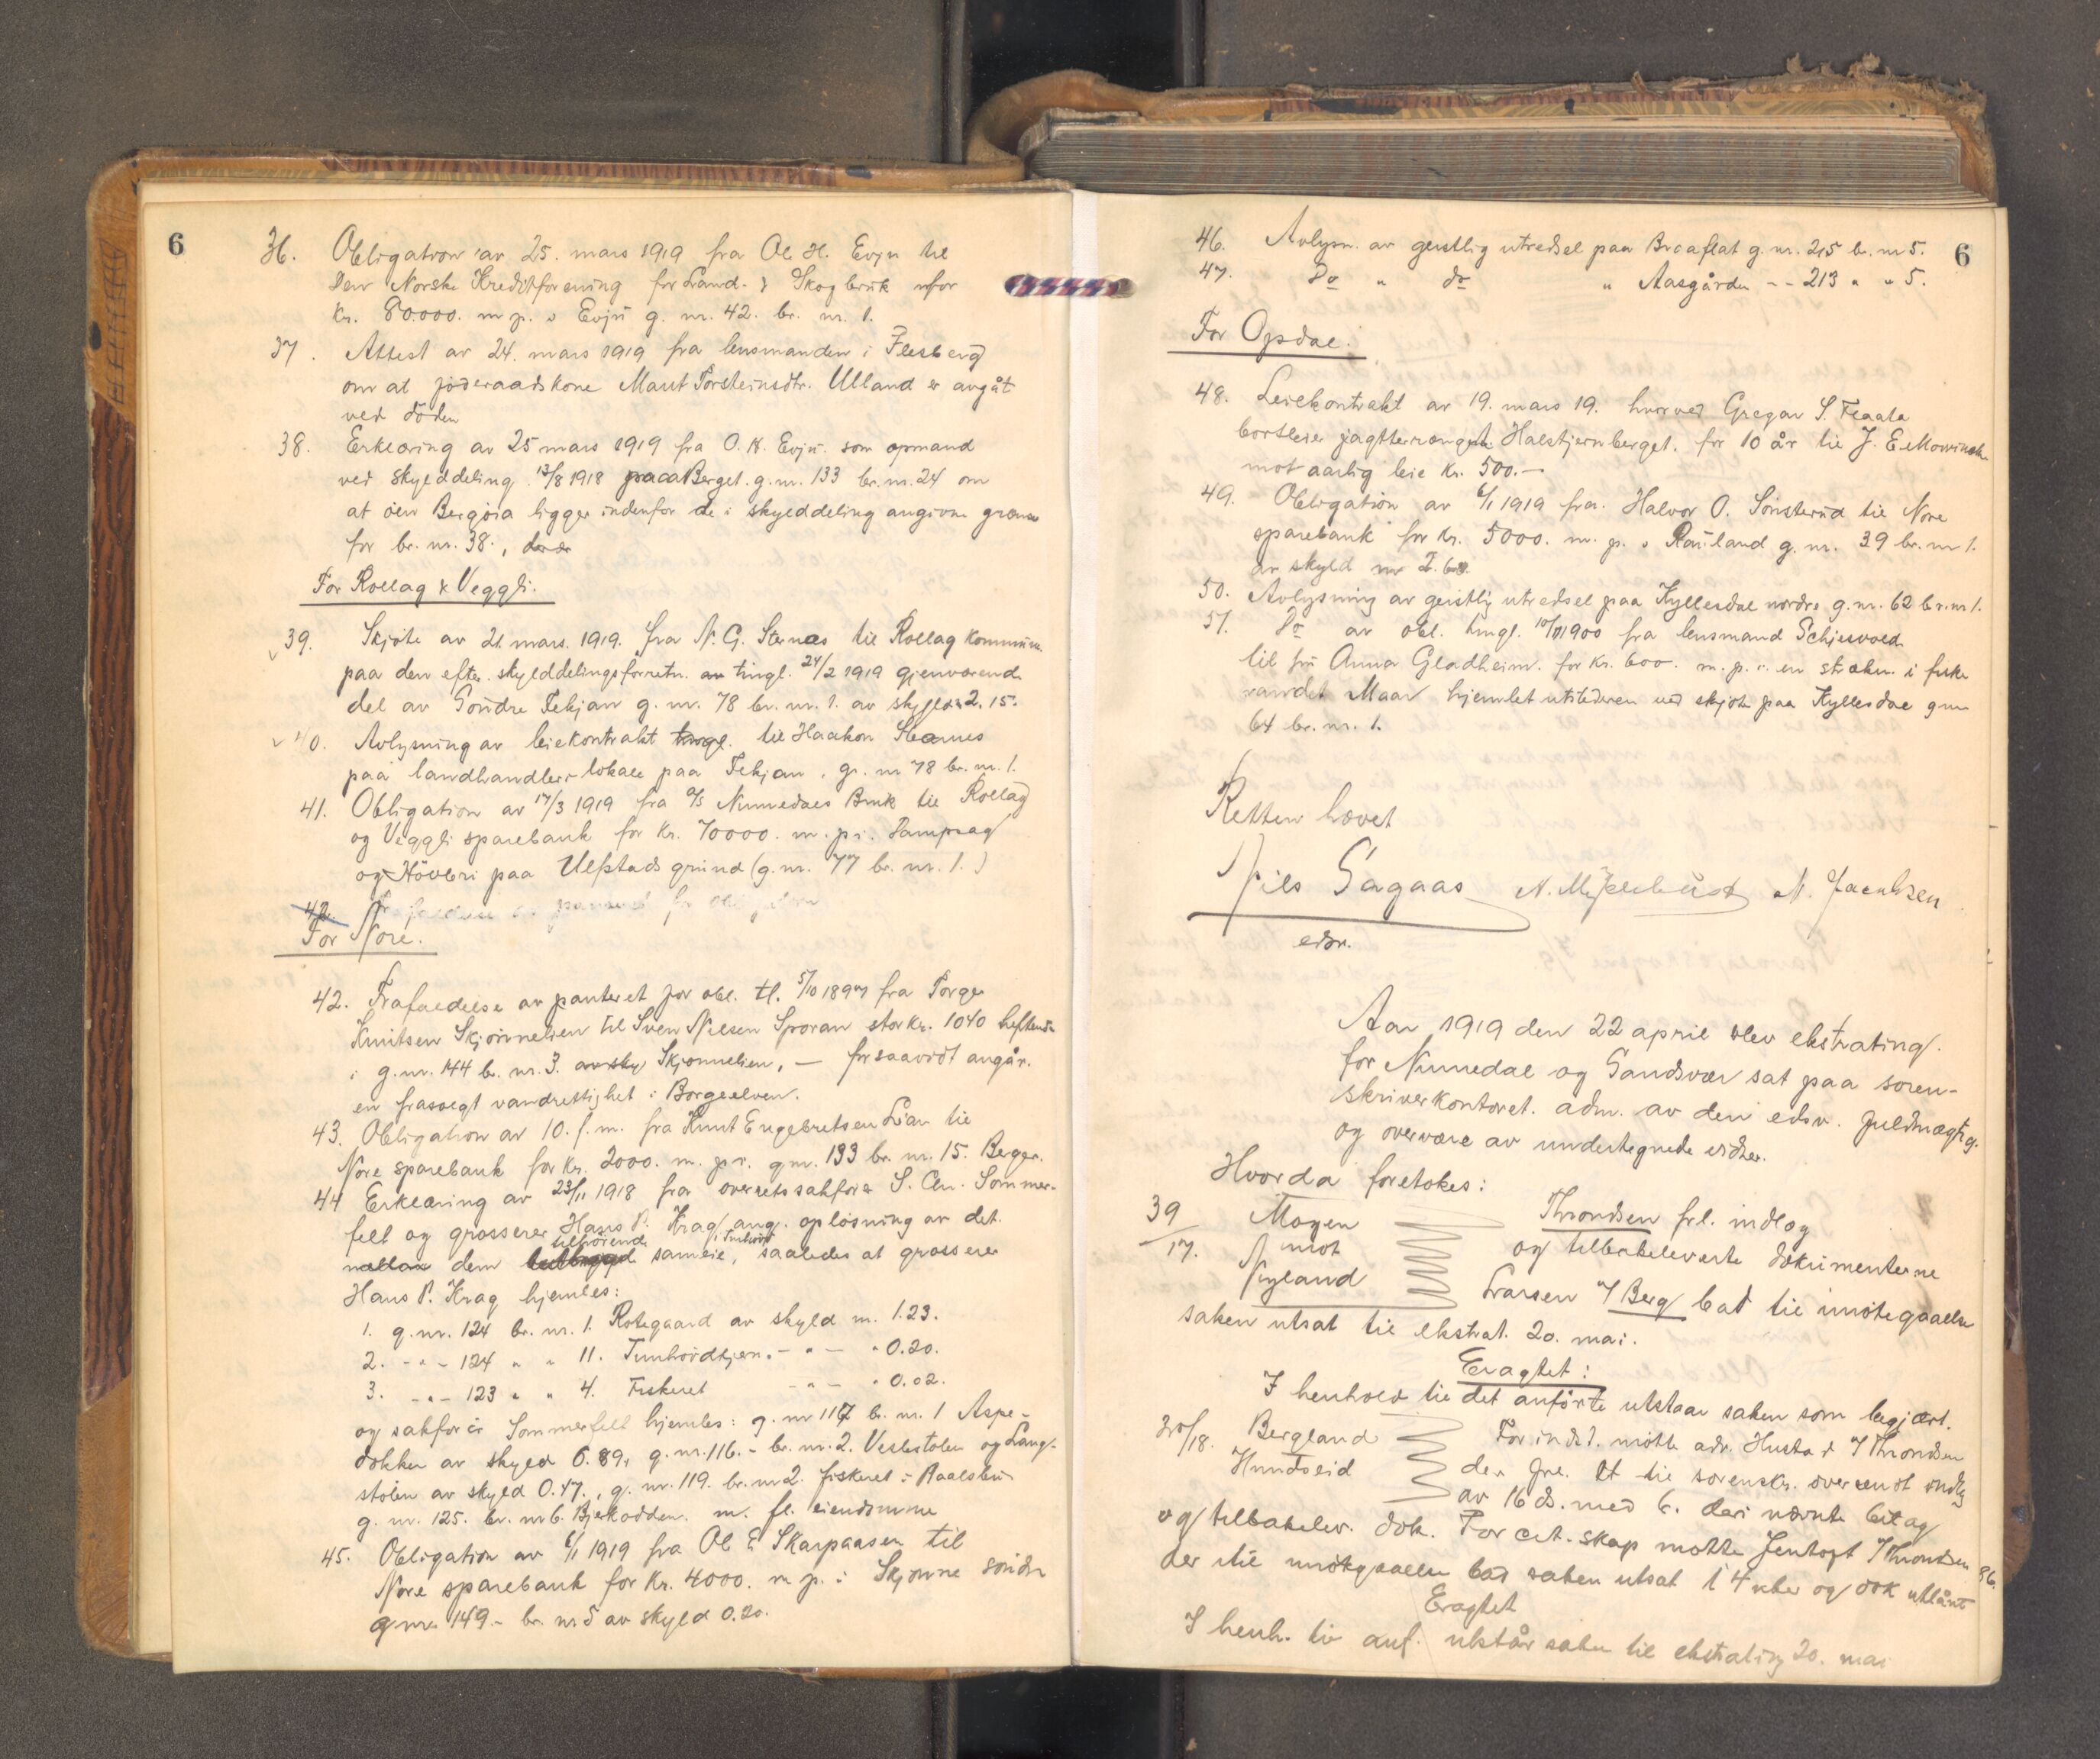 6
36. Obligation av 25. mars 1919 fra Ol H. Evju til
Den Norske Kreditforening for Land- & Skogbruk for
Kr. 80.000. m p. i Evju g. nr. 42. br. nr. 1.
37. Attest av 24. mars 1919 fra lensmanden i Flesberg
om at föderaadskone Marit Torsteinsdtr. Ulland er avgåt
ved döden
38. Erklæring av 25 mars 1919 fra O. H. Evju som opmand
ved skylddeling 13/8 1918 paa Berget g. nr. 133 br. nr. 24 om
at öen Bergöia ligger indenfor de i skylddeling angivne grænser
for br. nr. 38.,
For Rollag & Veggli.
39. Skjöte av 21. mars. 1919. fra N. G. Stenæs til Rollag Kommune
paa den efter skylddelingsforretn. tingl. 24/2 1919 gjenværende
del av Söndre Tekjan g. nr. 78 br. nr. 1. av skyld 2.15.
40. Avlysning av leiekontrakt tingl. til Haakon Stenæs
paa landhandleri-lokale paa Tekjan, g. nr 78 br. nr. 1.
41. Obligation av 17/3 1919 fra a/s Numedals Bruk til Rollag
og Veggli sparebank for Kr. 70000. m. p. i. Dampsag
og Hövleri paa Ulfstads grund (g. nr. 77 br. nr. 1.)
42.
For Nore.
42. Frafaldelse av panteret for obl. tl. 5/10 1897 fra Torge
Knutsen Skjönnelien til Sven Nilsen Sporan stor Kr. 1040 heftende
i g. nr. 144 b. nr. 3. Skjönnelien, — forsaavidt angår.
en frasolgt vandrettighet i Borgeelven.
43. Obligation av 10. f. m. fra Knut Engebretsen Lian til
Nore sparebank for Kr. 2000. m. p. i. g nr. 133 br. nr. 15. Berger.
44 Erklæring av 23/11 1918 fra overretssakförer S. Chr. Sommer-
felt og grosserer Hans P. Krag ang. oplösning av det
mellem dem tilhörende sameie, i Tunhövd saaledes at grosserer
Hans P. Krag hjemles:
1. g. nr. 124 br. nr. 1. Rotegaard av skyld m. 1.23.
2. - " - 124 " " 11. Tunhövdtjern. - " - " 0.20.
3. - " - 123 " " 4. Fiskeret - " - " 0.02.
og sakförer Sommerfelt hjemles: g. nr 117 b. nr. 1 Aspe-
dokken av skyld 0.89, g. nr. 116. - br. nr. 2. Veslestolen og Lang-
stölen av skyld 0.47., g. nr. 119. br. nr 2. fiskeret i
g. nr. 125. br. nr 6. Bjerkodden. m. fl. eiendomme
45. Obligation av 6/1 1919 fra Ol E Skarpaasen til
Nore sparebank for Kr. 4000. m p. i Skjönne söndre
g nr. 149. - br. nr 5 av skyld 0.20.
6
46. Avlysn. av geistlig utredsel paa Braaflat g. nr. 215 b. nr 5.
47. Do " do " Aasgården - - 213 " " 5.
For Opdal.
48. Leiekontrakt av 19. mars 19. hvorved Gregar S. Flaata
bortleier jagtterrænget Halstjernberget. for 10 år til J. E. Mowinckel
mot aarlig leie Kr. 500.—
49. Obligation av 6/1 1919 fra. Halvor O. Sönsterud til Nore
sparebank for Kr. 5000. m. p. i Rauland g. nr. 39 br. nr 1.
av skyld
50. Avlysning av geistlig utredsel paa Kyllesdal nordre g. nr. 62 br. nr 1.
51. Do av obl. tingl. fra lensmand Schjesvold
til fru Anna Gladheim. for Kr. 600. m. p. i. en strækn. i fiske
vandet Maar hjemlet utstederen ved skjöte paa Kyllesdal g nr
64 br. nr. 1.
Retten hævet
Nils Sagaas N. Mjelehust M. Jacobsen
edsv.
Aar 1919 den 22 april blev ekstrating.
for Numedal og Sandsvær sat paa soren-
skriverkontoret. adm. av den edsv. fuldmægtig.
og overvære av undertegnede vidner.
Hvorda foretokes:
39/17. Mogen
mot
Nyland
Throndsen frl. indlog
og tilbakeleverte dokumenterne
Larsen f Berg bad til imötegaaelse
saken utsat til ekstrat. 20. mai.
Eragtet:
I henhold til det anförte utstaar saken som begjært.
/18. Bergland
Hundseid
For indst. mötte adv. Hustad f Throndsen
der frl. et til sorenskr. oversendt indlæg
av 16 ds. med 6. deri nævnte bilag
og tilbakelev. dok. For cit.skap mötte Jentoft f Throndsen
der til imötegaaelse bad saken utsat i 4 uker og dok utlånt
Eragtet
I henh. til anf. utstår saken til ekstrating 20. mai